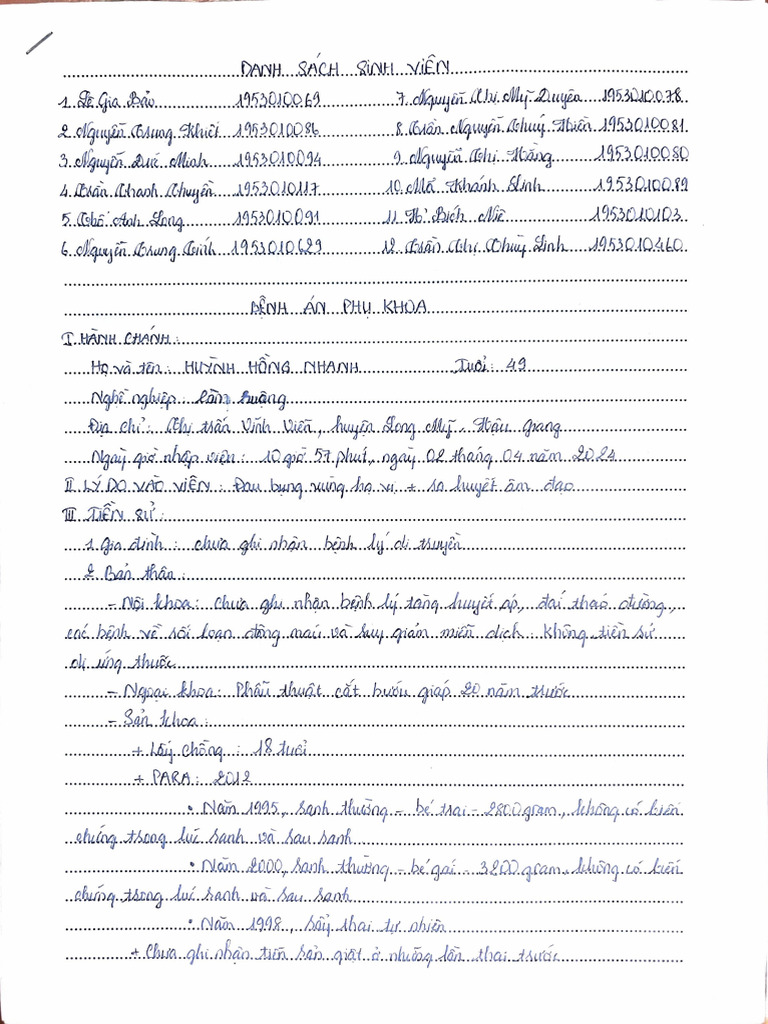 DANH SÁCH SINH VIÊN
1. Lê Gia Bảo 1953010069 7. Nguyễn Thị Mỹ Duyên 1953010078
2. Nguyễn Trung Khiết 1953010086 8. Trần Nguyễn Thuý Hiền 1953010081
3. Nguyễn Đức Minh 1953010094 9. Nguyễn Thị Hằng 1953010080
4. Trần Thanh Thuyền 1953010117 10. Mã Khánh Linh 1953010089
5. Thế Anh Long 1953010091 11. H' Bích Niê 1953010103
6. Nguyễn Trung Tính 1953010629 12. Trần Thị Thuỳ Linh 1953010460
BỆNH ÁN PHỤ KHOA
I HÀNH CHÁNH:
Họ và tên: HUỲNH HỒNG NHANH Tuổi: 49
Nghề nghiệp: Làm ruộng
Địa chỉ: Thị trấn Vĩnh Viễn, huyện Long Mỹ - Hậu Giang
Ngày giờ nhập viện: 10 giờ 57 phút, ngày 02 tháng 04 năm 2024
II LÝ DO VÀO VIỆN: Đau bụng vùng hạ vị + ra huyết âm đạo
III TIỀN SỬ:
1. Gia đình: chưa ghi nhận bệnh lý di truyền
2. Bản thân:
- Nội khoa: chưa ghi nhận bệnh lý tăng huyết áp, đái tháo đường,
các bệnh về rối loạn đông máu và suy giảm miễn dịch. không tiền sử
dị ứng thuốc
- Ngoại khoa: Phẫu thuật cắt bướu giáp 20 năm trước
- Sản khoa:
+ Lấy chồng: 18 tuổi
+ PARA: 2012
• Năm 1995, sanh thường - bé trai - 2800 gram, không có biến
chứng trong lúc sanh và sau sanh
• Năm 2000, sanh thường - bé gái - 3200 gram, không có biến
chứng trong lúc sanh và sau sanh
• Năm 1998, sẩy thai tự nhiên
+ Chưa ghi nhận tiền sản giật ở những lần thai trước